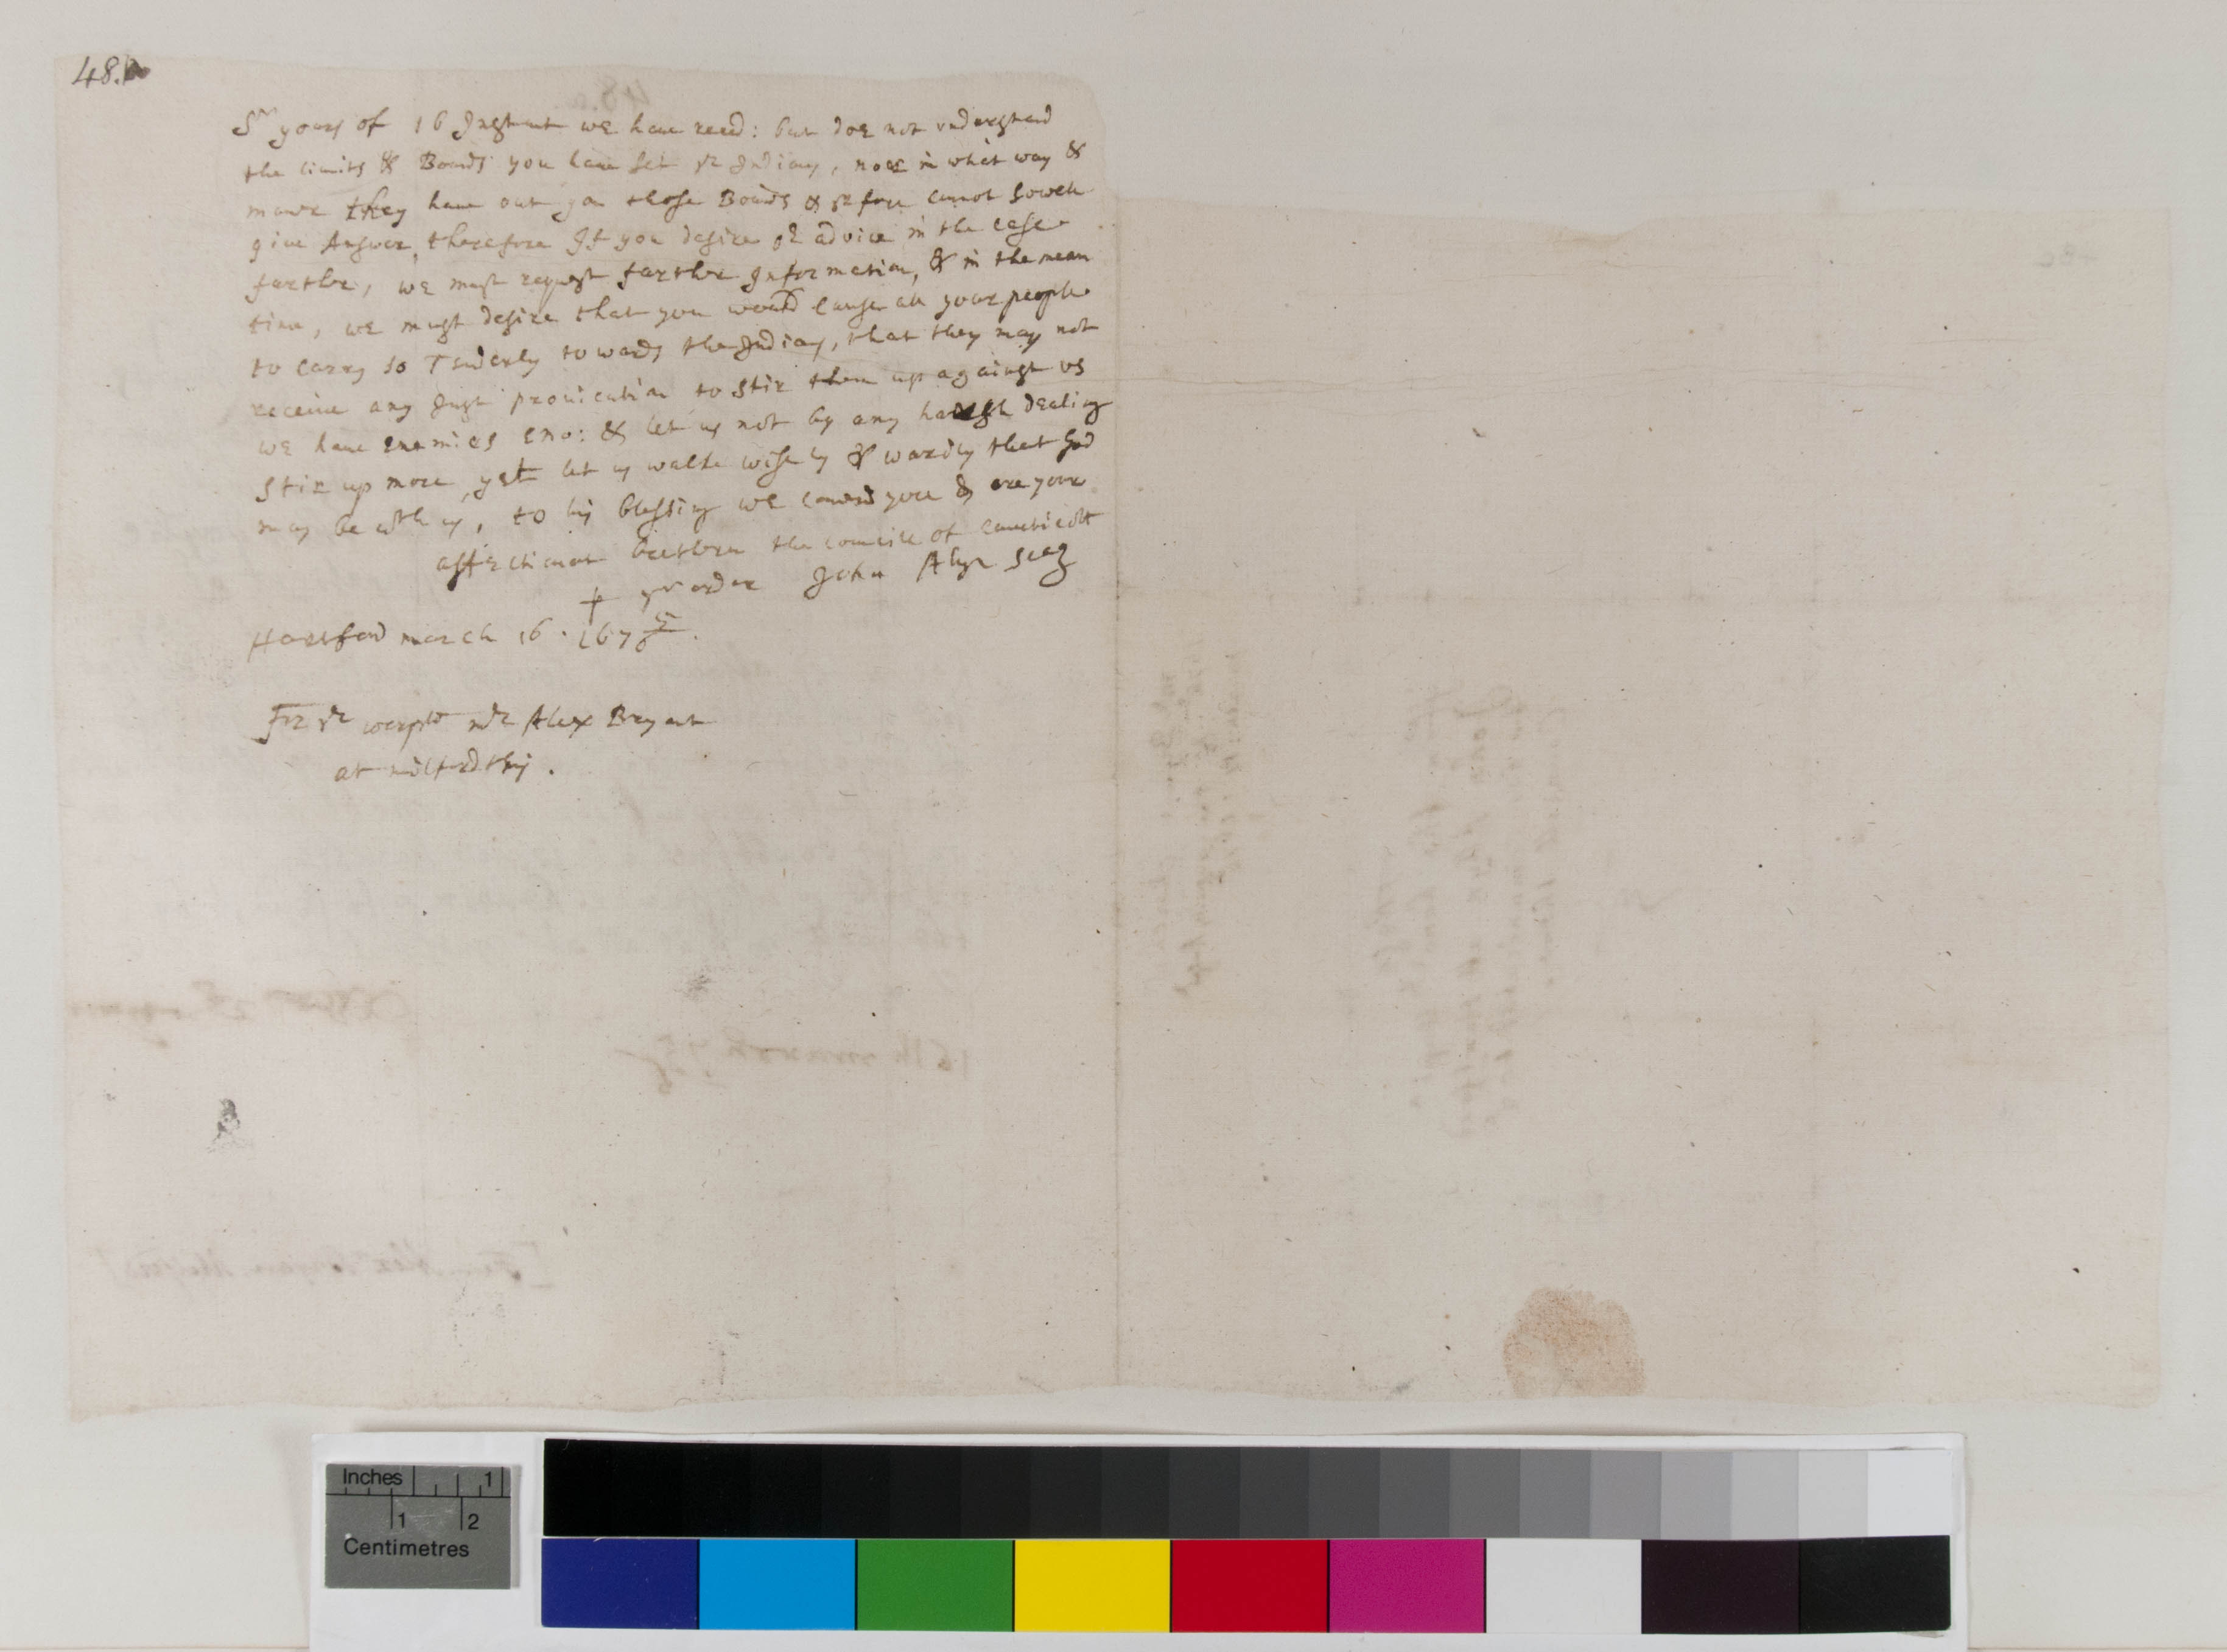 48.
Sr yours of 16 Instant we haue recd: but doe not vnderstand
the limits & Bounds you haue set yr Indians, nor in what way &
maner they haue out gon those Bounds & yr fore cannot so well
giue Answer, therefore If you desire or advice in the case
farther, we must request farther Information, & in the mean
time, we must desire that you would cause all your people
to carry so Tenderly towards the Indians, that they may not
receiue any Just prouication to stir them up against vs
we haue enemies eno: & let us not by any harsh dealing
stir up more, yet let us walke wisely & warily that God
may be wth us, to his blessing we comend you & are your
affectionat bretheren the councill of Conecticott
p yr order John Allyn Secy
Hartford march 16. 167 5/6.
For yr worpll mr Alex Bryant
at milford this.
Inches 1
1 2
Centimetres